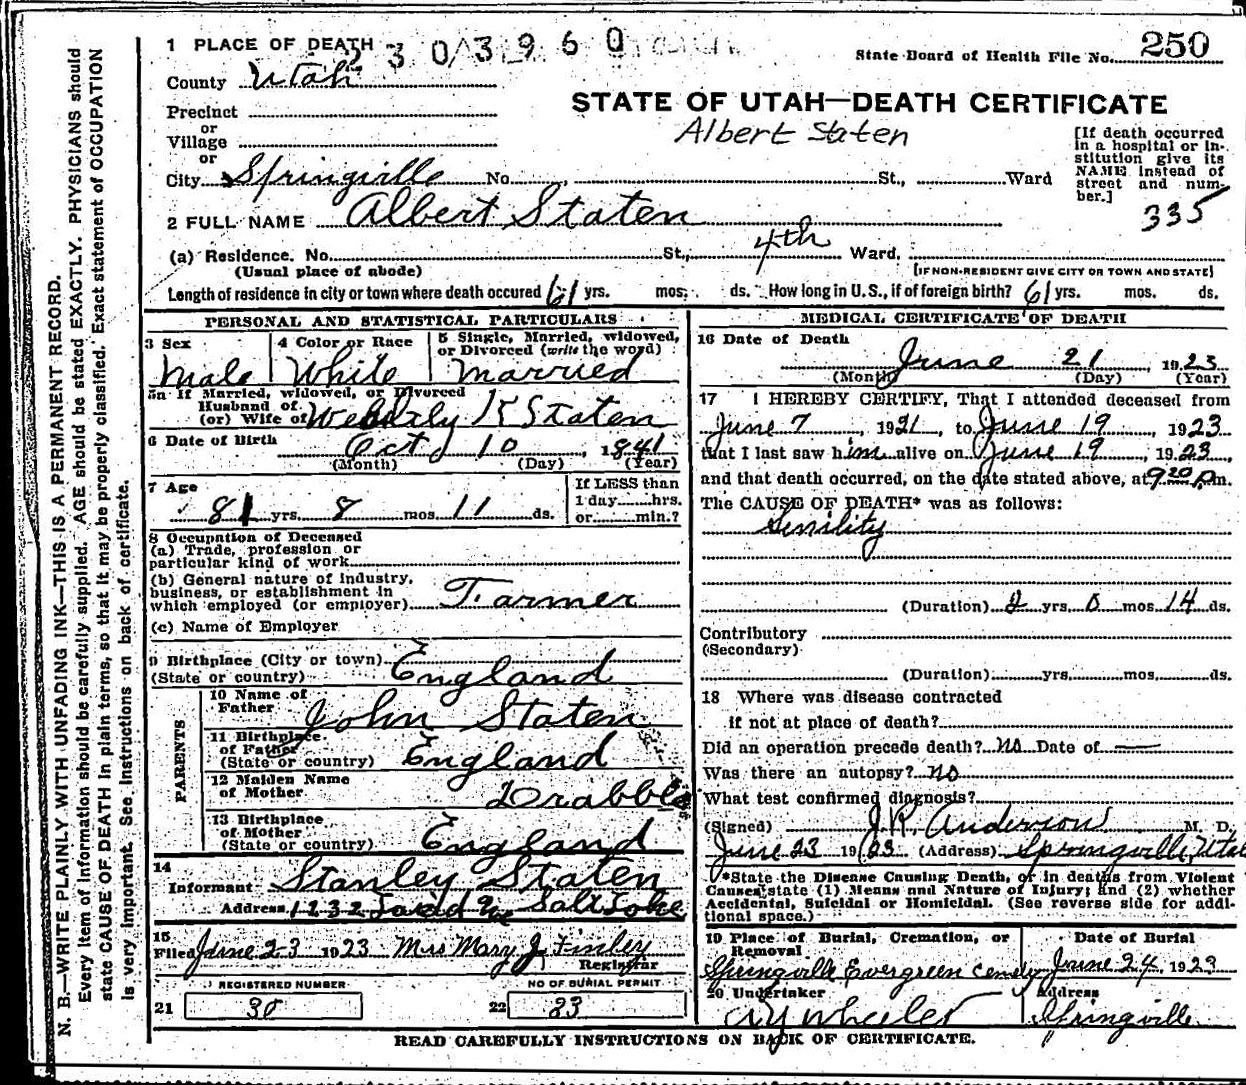 1 PLACE OF DEATH
2 3 0 3 9 6 0
State Board of Health File No. 250
County Utah
STATE OF UTAH—DEATH CERTIFICATE
Precinct
Albert Staten
or
Village
or
City Springville No. St., Ward
[If death occurred
in a hospital or in-
stitution give its
NAME instead of
street and num-
ber.]
335
2 FULL NAME Albert Staten
(a) Residence. No. St., 4th Ward.
(Usual place of abode)
[IF NON-RESIDENT GIVE CITY OR TOWN AND STATE]
Length of residence in city or town where death occured 61 yrs. mos. ds. How long in U.S., if of foreign birth? 61 yrs. mos. ds.
PERSONAL AND STATISTICAL PARTICULARS
3 Sex
Male
4 Color or Race
White
5 Single, Married, widowed,
or Divorced (write the word)
Married
5a If Married, widowed, or Divorced
Husband of
(or) Wife of K Staten
6 Date of Birth
Oct 10, 1841
(Month) (Day) (Year)
7 Age
81 yrs. 8 mos. 11 ds.
If LESS than
1 day hrs.
or min.?
8 Occupation of Deceased
(a) Trade, profession or
particular kind of work
(b) General nature of industry,
business, or establishment in
which employed (or employer) Farmer
(c) Name of Employer
9 Birthplace (City or town)
(State or country) England
PARENTS
10 Name of
Father John Staten
11 Birthplace
of Father
(State or country) England
12 Maiden Name
of Mother Drabble
13 Birthplace
of Mother
(State or country) England
14
Informant Stanley Staten
Address 1232 Ave Salt Lake
15
Filed June 23 1923 Mrs Mary J Finley
Registrar
REGISTERED NUMBER
21 30
NO OF BURIAL PERMIT
22 23
MEDICAL CERTIFICATE OF DEATH
16 Date of Death
June 21 1923
(Month) (Day) (Year)
17 I HEREBY CERTIFY, That I attended deceased from
June 7, 1921, to June 19, 1923
that I last saw him alive on June 19, 1923,
and that death occurred, on the date stated above, at 9 20 P.m.
The CAUSE OF DEATH* was as follows:
Senility
(Duration) 2 yrs. 0 mos. 14 ds.
Contributory
(Secondary)
(Duration) yrs. mos. ds.
18 Where was disease contracted
if not at place of death?
Did an operation precede death? no Date of —
Was there an autopsy? no
What test confirmed diagnosis?
(Signed) J.R. Anderson M. D.
June 23 1923 (Address) Springville, Utah
*State the Disease Causing Death, or in deaths from Violent
Causes, state (1) Means and Nature of Injury; and (2) whether
Accidental, Suicidal or Homicidal. (See reverse side for addi-
tional space.)
19 Place of Burial, Cremation, or
Removal
Springville Evergreen Cemetery
Date of Burial
June 24, 1923
20 Undertaker
A Y Wheeler
Address
Springville
READ CAREFULLY INSTRUCTIONS ON BACK OF CERTIFICATE.
N. B.—WRITE PLAINLY WITH UNFADING INK—THIS IS A PERMANENT RECORD.
Every item of information should be carefully supplied. AGE should be stated EXACTLY. PHYSICIANS should
state CAUSE OF DEATH in plain terms, so that it may be properly classified. Exact statement of OCCUPATION
is very important. See instructions on back of certificate.